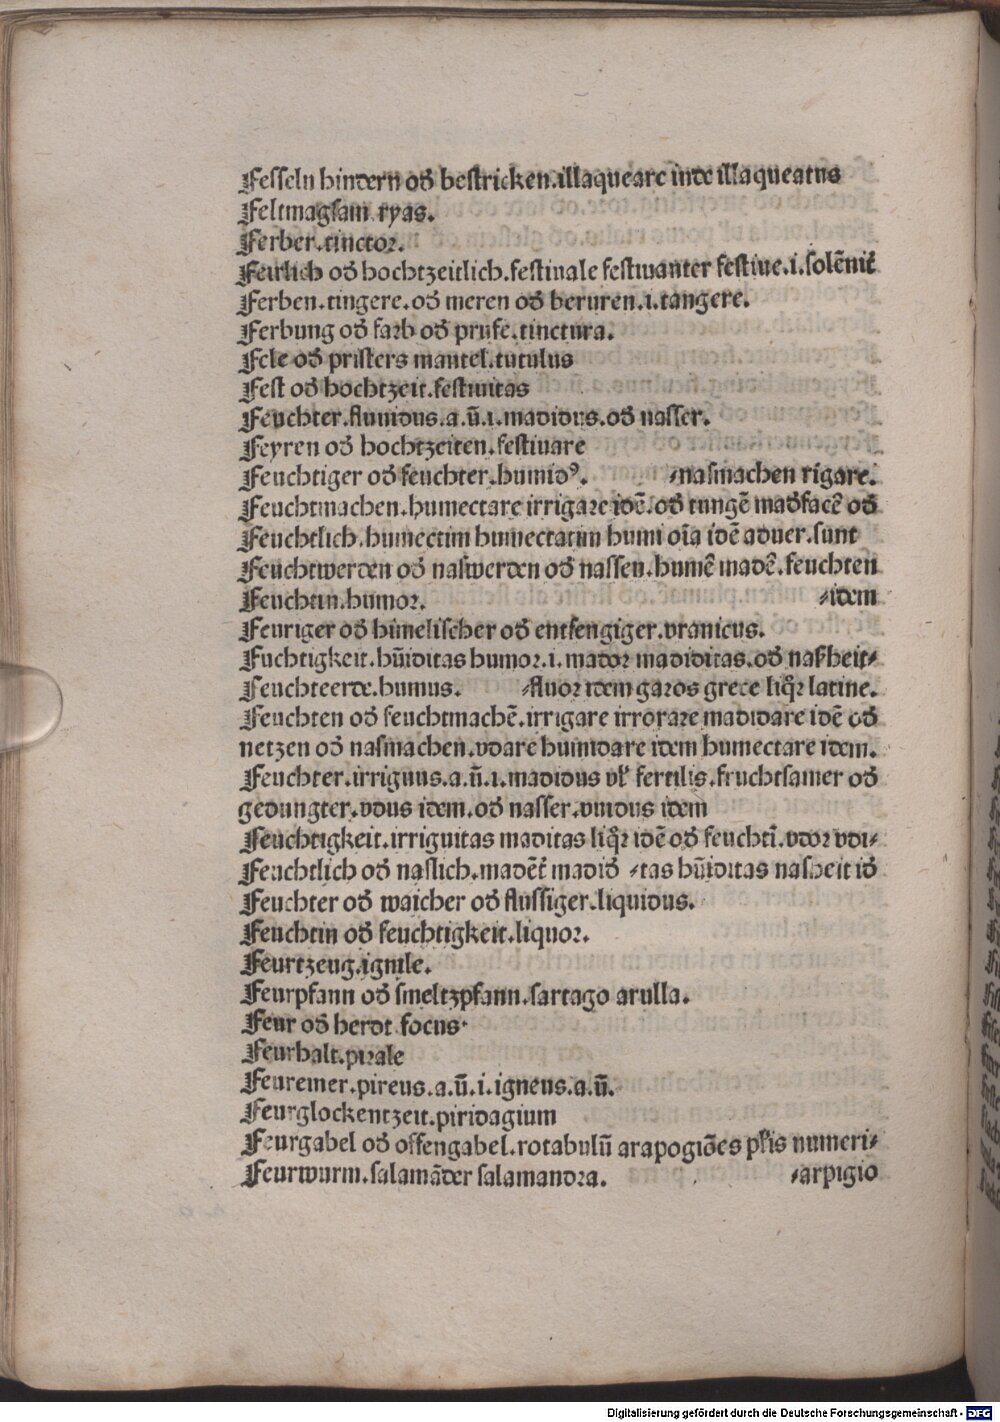 Fesseln hindern od̄ bestricken.illaqueare inde illaqueatus
Feltmagsam ryas.
Ferber.tinctor.
Feirlich od̄ hochtzeitlich.festiuale festiuanter festiue.i.solēnit̄
Ferben.tingere.od̄ meren od̄ beruren.i.tangere.
Ferbung od̄ farb od̄ prufe.tinctura.
Fele od̄ pristers mantel.tutulus
Fest od̄ hochtzeit.festiuitas
Feuchter.fluuidus.a.ū.i.madidus.od̄ nasser.
Feyren od̄ hochtzeiten.festiuare
Feuchtiger od̄ feuchter.humidꝰ. ⸗nasmachen rigare.
Feuchtmachen.humectare irrigare idē.od̄ tungē mad̄facē od̄
Feuchtlich.humectim humectatim humi oīa idē aduer.sunt
Feuchtwerden od̄ naswerden od̄ nassen.humē madē.feuchten
Feuchtin.humor. ⸗idem
Feuriger od̄ himelischer od̄ entfengiger.vranicus.
Fuchtigkeit.hūiditas humor.i.mador madiditas.od̄ naßheit⸗
Feuchteerde.humus. ⸗fluor idem garos grece liq̄r latine.
Feuchten od̄ feuchtmachē.irrigare irrorare madidare idē od̄
netzen od̄ nasmachen.vdare humidare idem humectare idem.
Feuchter.irriguus.a.ū.i.madidus vl̄ fertilis.fruchtsamer od̄
gedungter.vdus idem.od̄ nasser.vuidus idem
Feuchtigkeit.irriguitas maditas liq̄r idē od̄ feuchtī.vdor vdi⸗
Feuchtlich od̄ naslich.madēt̄ madid̄ ⸗tas hūiditas nasheit id̄
Feuchter od̄ waicher od̄ flussiger.liquidus.
Feuchtin od̄ feuchtigkeit.liquor.
Feurtzeug.ignile.
Feurpfann od̄ smeltzpfann.sartago arulla.
Feur od̄ herdt focus·
Feurhalt.pirale
Feureiner.pireus.a.ū.i.igneus.a.ū.
Feurglockentzeit.piridagium
Feurgabel od̄ offengabel.rotabulū arapogiōes pl̄is numeri⸗
Feurwurm.salamāder salamandra. ⸗arpigio
Digitalisierung gefördert durch die Deutsche Forschungsgemeinschaft - DFG